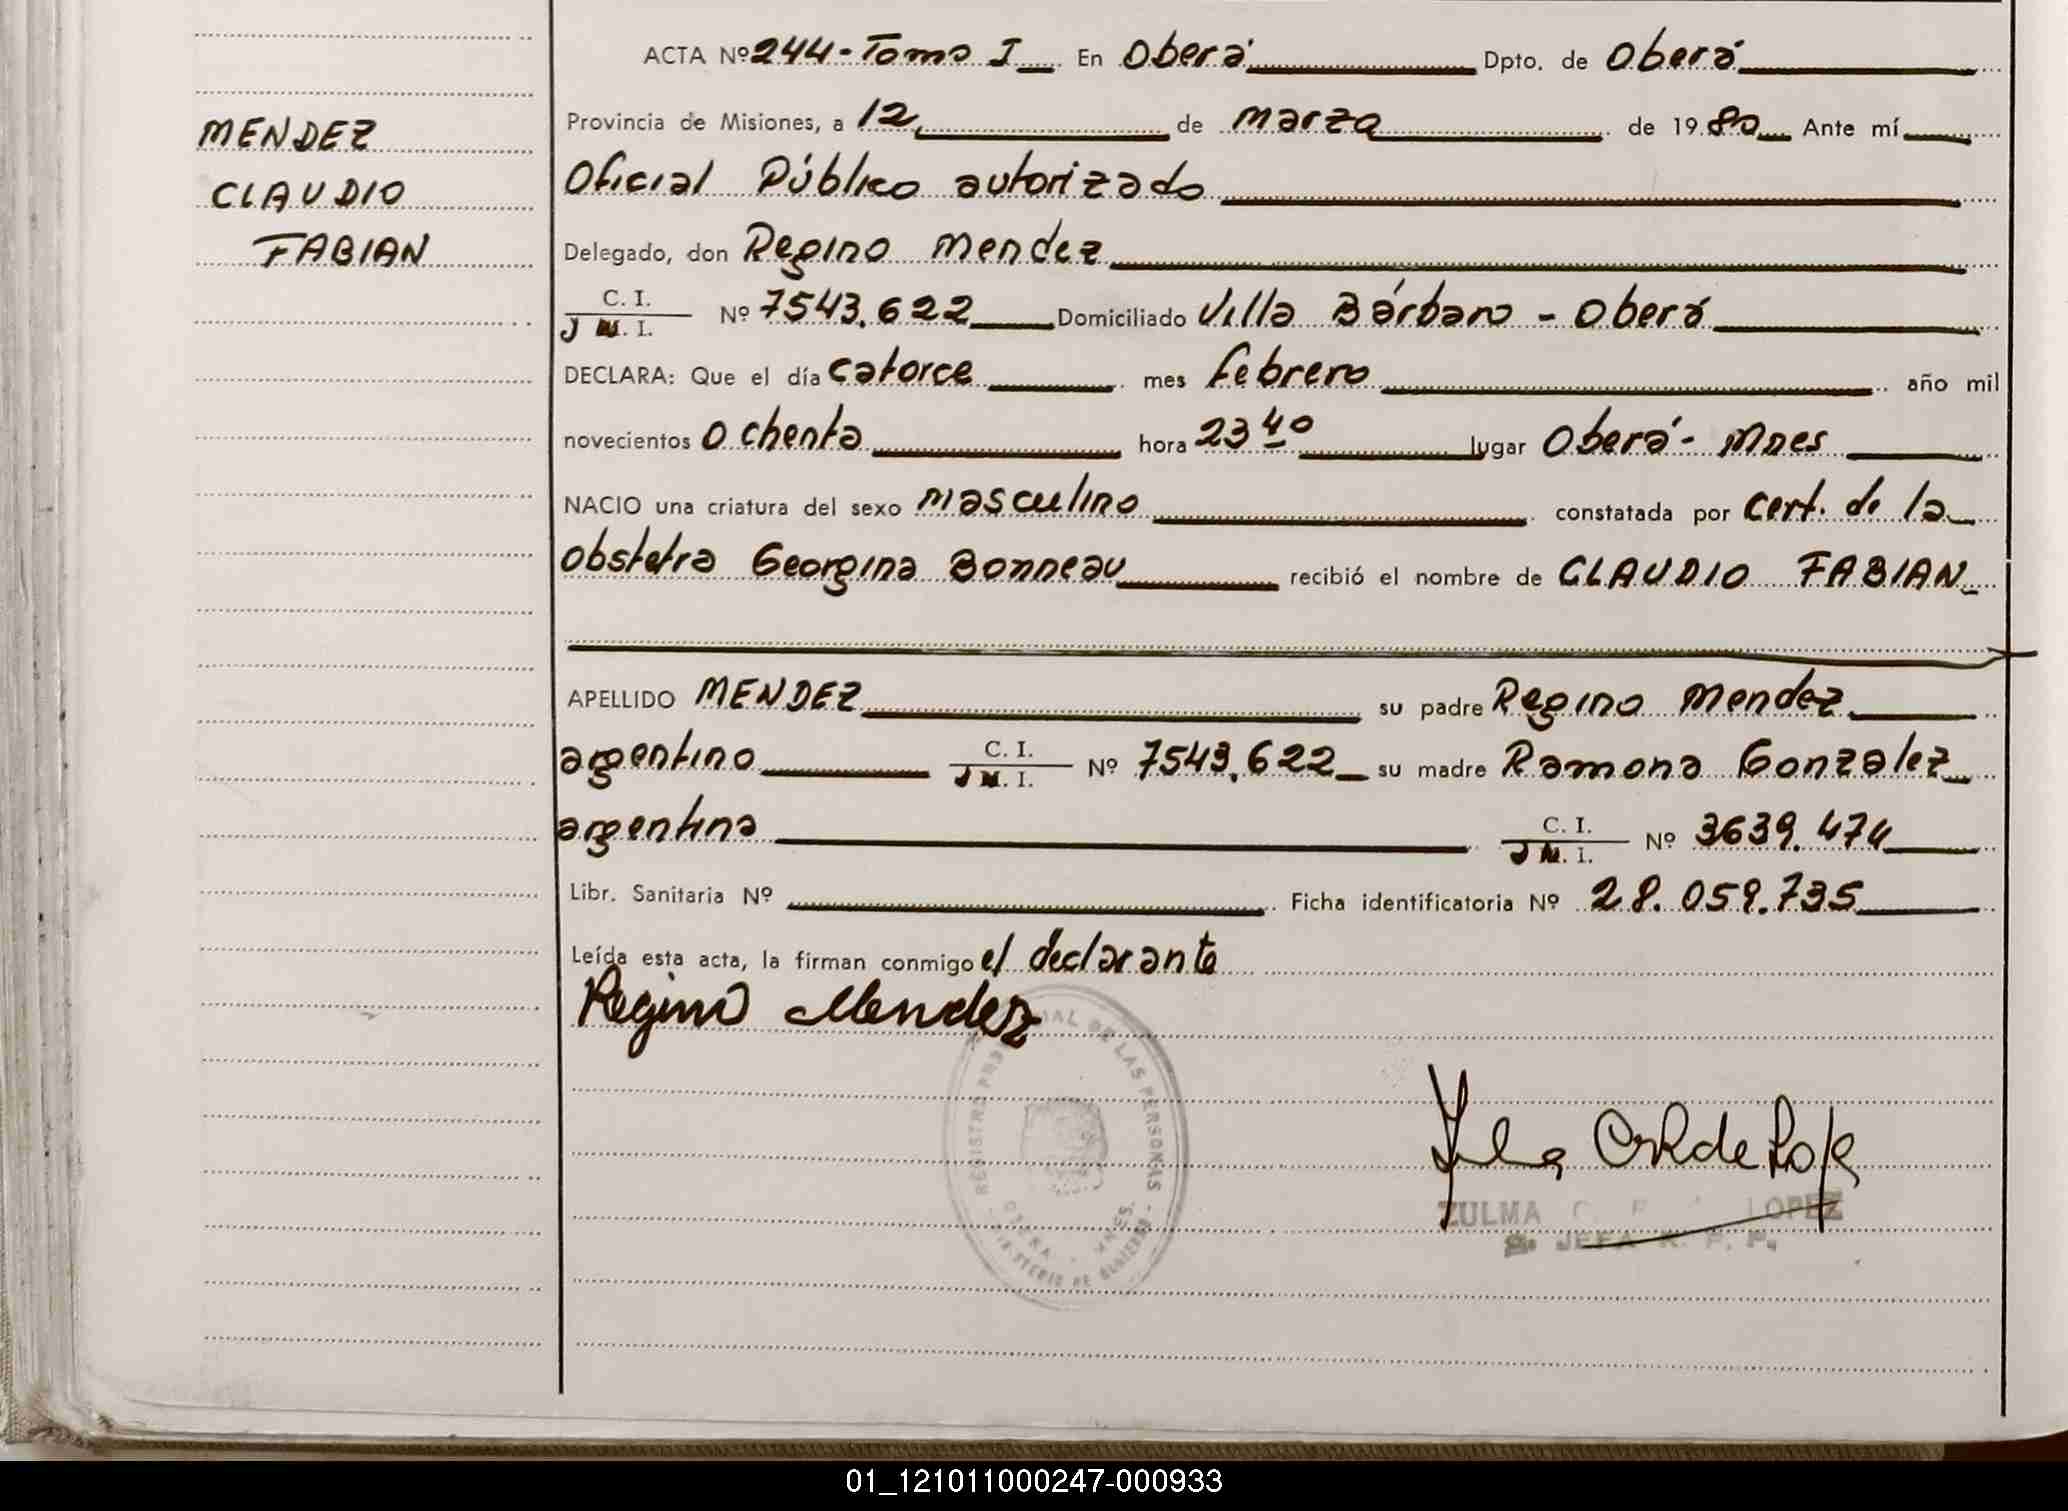 MENDEZ
CLAUDIO
FABIAN
ACTA Nº 244-Tomo I En Oberá Dpto. de Oberá
Provincia de Misiones, a 12 de marzo de 1980 Ante mí
Oficial Público autorizado
Delegado, don Regino Mendez
C. I.
M. I. Nº 7543.622 Domiciliado Villa Bárbaro - Oberá
DECLARA: Que el día catorce mes febrero año mil
novecientos ochenta hora 23 40 lugar Oberá - Mnes
NACIO una criatura del sexo masculino constatada por cert. de la
obstetra Georgina Bonneau recibió el nombre de CLAUDIO FABIAN
APELLIDO MENDEZ su padre Regino Mendez
argentino C. I.
M. I. Nº 7543.622 su madre Ramona Gonzalez
argentina C. I.
M. I. Nº 3639.474
Libr. Sanitaria Nº Ficha identificatoria Nº 28.059.735
Leída esta acta, la firman conmigo el declarante
Regino Mendez
REGISTRO DE LAS PERSONAS
OBERA MNES.
ZULMA C. LOPEZ
JEFA R. P. P.
01_121011000247-000933